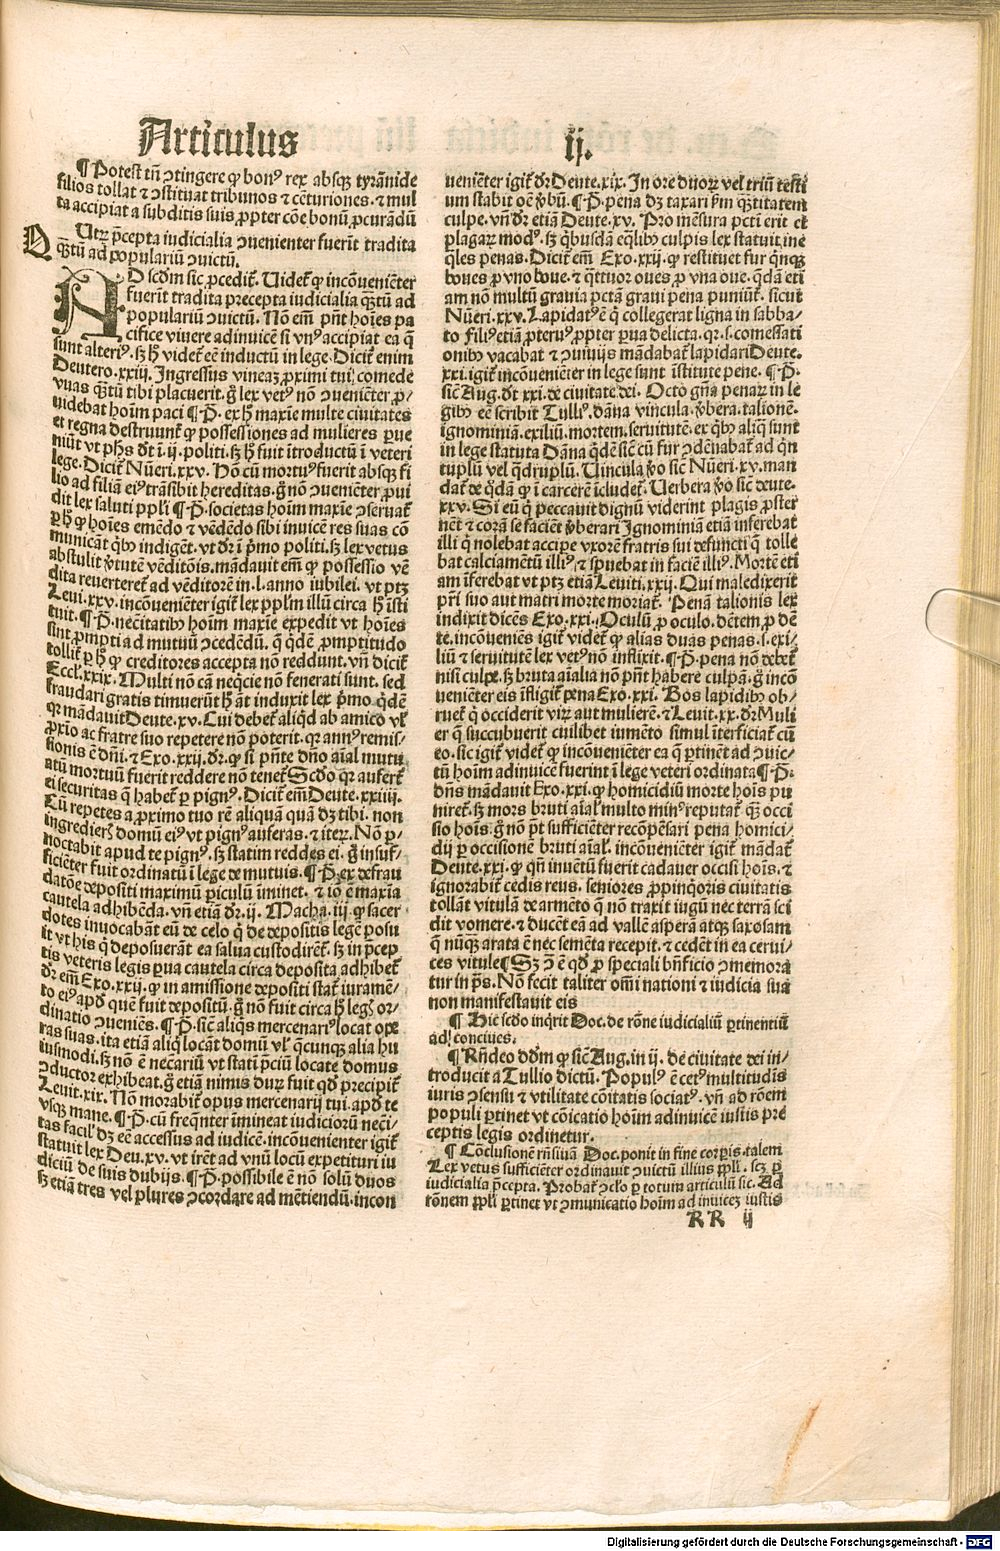 Articulus ij.
¶ Potest tñ ↄtingere ꝙ bonꝰ rex absqꝫ tyrãnide
filios tollat ⁊ ↄstituat tribunos ⁊ cẽturiones. ⁊ mul
ta accipiat a subditis suis ꝓpter cõe bonũ ꝓcurãdũ
Utrꝫ p̃cepta iudicialia ↄuenienter fuerĩt tradita
q̃ꝫtũ ad populariũ ↄuictũ.
AD scd̃m sic ꝓcedit̃. Uidet̃ ꝙ incõueniẽter
fuerĩt tradita precepta iudicialia q̃ꝫtũ ad
populariũ ↄuictũ. Nõ em̃ pñt hoĩes pa
cifice vivere adinuicẽ si vnꝰ accipiat ea q̃
sunt alteriꝰ. sꝫ h̃ videt̃ eẽ inductũ in lege. Dicit̃ enim
Deutero.xxiij. Ingressus vineaꝫ ꝓximi tui/ comede
vuas q̃ꝫtũ tibi placuerit. g̃ lex vetꝰ nõ ↄueniẽter ꝓ/
uidebat hoĩm paci ¶ P̃. ex h̃ maxĩe multe ciuitates
et regna destruunt̃ ꝙ possessiones ad mulieres ꝑue
niũt vt ph̃s dt̃ ĩ.ij.politi. sꝫ h̃ fuit ĩtroductũ ĩ veteri
lege. Dicit̃ Nũeri.xxv. Hõ cũ mortuꝰ fuerit absqꝫ fi
lio ad filiã eiꝰ trãsibit hereditas. g̃ nõ ↄueniẽter ꝓui
dit lex saluti ppl̃i ¶ P̃. societas hoĩm maxĩe ↄseruat̃
ꝑ h̃ ꝙ hoĩes emẽdo ⁊ vẽdẽdo sibi inuicẽ res suas cõ
municãt q̃bꝰ indigẽt. vt dr̃ ĩ p̃mo politi. sꝫ lex vetus
abstulit ṽtutẽ vẽditõis. mãdauit em̃ ꝙ possessio vẽ
dita reuerteret̃ ad vẽditorẽ in.l.anno iubilei. vt ptꝫ
Leui.xxv. incõueniẽter igit̃ lex ppl̃m illũ circa h̃ ĩsti
tuit. ¶ P̃. nec̃itatibꝰ hoĩm maxĩe expedit vt hoĩes
sint ꝓmpti ad mutuũ ↄcedẽdũ. q̃ q̃dẽ ꝓmptitudo
tollit̃ ꝑ h̃ ꝙ creditores accepta nõ reddunt. vñ dicit̃
Eccl̃.xxix. Multi nõ cã neq̃cie nõ fenerati sunt. sed
fraudari gratis timuerũt h̃ ãt induxit lex p̃mo q̃dẽ
qꝛ mãdauit Deute.xv. Cui debet̃ aliq̃d ab amico vl̃
ꝓxĩo ac fratre suo repetere nõ poterit. qꝛ annꝰ remis/
sionis ẽ dñi. ⁊ Exo.xxij. dr̃. ꝙ si pñte dño aĩal mutu
atũ mortuũ fuerit reddere nõ tenet̃ Scd̃o qꝛ aufert̃
ei securitas q̃ habet̃ ꝑ pignꝰ. Dicit̃ em̃ Deute.xxiiij.
Cũ repetes a ꝓximo tuo rẽ aliquã quã dꝫ tibi. non
ingredierꝭ domũ eiꝰ vt pignꝰ auferas. ⁊ iteꝝ. Nõ ꝑ/
noctabit apud te pignꝰ. sꝫ statim reddes ei. g̃ insuf/
ficiẽter fuit ordinatũ ĩ lege de mutuis. ¶ P̃. ex defrau
datõe depositi maximũ ꝑiculũ ĩminet. ⁊ iõ ẽ maxĩa
cautela adhibẽda. vñ etiã dr̃.ij. Macha.iij. ꝙ sacer
dotes inuocabãt eũ de celo q̃ de depositis legẽ posu
it vt his q̃ deposuerãt ea salua custodirẽt. sꝫ in p̃cep
tis veteris legis ꝑua cautela circa deposita adhibet̃
dr̃ em̃ Exo.xxij. ꝙ in amissione depositi stat̃ iuramẽ/
to eiꝰ apd̃ quẽ fuit depositũ. g̃ nõ fuit circa h̃ legꝭ or/
dinatio ↄueniẽs. ¶ P̃. sic̃ aliq̃s mercenariꝰ locat oꝑe
ras suas. ita etiã aliq̃ locãt domũ vl̃ q̃cunqꝫ alia hu
iusmodi. sꝫ nõ ẽ nec̃ariũ vt statĩ p̃ciũ locate domus
ↄductor exhibeat. g̃ etiã nimis duꝝ fuit qd̃ precipit̃
Leuit.xix. Nõ morabit̃ opus mercenarij tui apd̃ te
vsqꝫ mane. ¶ P̃. cũ freq̃nter ĩmineat iudicioꝝ nec̃i/
tas facilꝭ dꝫ eẽ accessus ad iudicẽ. incõuenienter igit̃
statuit lex Deu.xv. vt irẽt ad vnũ locũ expetituri iu
diciũ de suis dubijs. ¶ P̃. possibile ẽ nõ solũ duos
sꝫ etiã tres vel plures ↄcordare ad mẽtiendũ. incon
ueniẽter igit̃ dr̃ Deute.xix. In ore duoꝝ vel triũ testi
um stabit oẽ ṽbũ. ¶ P̃. pena dꝫ taxari ẜm q̃ꝫtitatem
culpe. vñ dr̃ etiã Deute.xv. Pro mẽsura pcti erit et
plagaꝝ modꝰ. sꝫ q̃busdã eq̃libꝰ culpis lex statuit ine
q̃les penas. Dicit̃ em̃ Exo.xxij. ꝙ restituet fur q̃nqꝫ
boues ꝓ vno boue. ⁊ q̃ttuor oues ꝓ vna oue. q̃dã eti
am nõ multũ grauia pctã graui pena puniũt̃. sicut
Nũeri.xxv. Lapidatꝰ ẽ q̃ collegerat ligna in sabba/
to filiꝰ etiã ꝓteruꝰ ꝓpter ꝑua delicta. qꝛ.s. comessati
onibꝰ vacabat ⁊ ↄuiuijs mãdabat̃ lapidari Deute.
xxi. igit̃ incõueniẽter in lege sunt ĩstitute pene. ¶ P̃.
sic̃ Aug. dt̃ xxi. de ciuitate dei. Octo gña penaꝝ in le
gibꝰ eẽ scribit Tulliꝰ. dãna vincula. ṽbera. talionẽ.
ignominiã. exiliũ. mortem. seruitutẽ. ex q̃bꝰ aliq̃ sunt
in lege statuta Dãna q̃dẽ sic̃ cũ fur ↄdẽnabat̃ ad q̃n
tuplũ vel q̃druplũ. Uincula ṽo sic̃ Nũeri.xv. man
dat̃ de q̃dã ꝙ ĩ carcerẽ ĩcludet̃. Uerbera ṽo sic̃ deute.
xxv. Si eũ q̃ peccauit dignũ viderint plagis ꝓster
nẽt ⁊ corã se faciẽt ṽberari Ignominiã etiã inferebat
illi q̃ nolebat accipe vxorẽ fratris sui defuncti q̃ tolle
bat calciamẽtũ illiꝰ ⁊ spuebat in faciẽ illiꝰ. Mortẽ eti
am ĩferebat vt ptꝫ etiã Leuiti.xxij. Qui maledixerit
pr̃i suo aut matri morte moriat̃. Penã talionis lex
indixit dicẽs Exo.xxi. Oculũ ꝓ oculo. dẽtem ꝓ dẽ
te. incõueniẽs igit̃ videt̃ ꝙ alias duas penas.s. exi/
liũ ⁊ seruitutẽ lex vetꝰ nõ inflixit. ¶ P̃. pena nõ debet̃
nisi culpe. sꝫ bruta aĩalia nõ pñt habere culpã. g̃ incõ
ueniẽter eis ĩfligit̃ pena Exo.xxi. Bos lapidibꝰ ob/
ruet̃ q̃ occiderit virꝫ aut mulierẽ. ⁊ Leuit.xx. dr̃ Muli
er q̃ succubuerit cuilibet iumẽto simul ĩterficiat̃ cũ
eo. sic igit̃ videt̃ ꝙ incõueniẽter ea q̃ ꝑtinẽt ad ↄuic/
tũ hoĩm adinuicẽ fuerint ĩ lege veteri ordinata ¶ P̃.
dñs mãdauit Exo.xxi. ꝙ homicidiũ morte hoĩs pu
niret̃. sꝫ mors bruti aĩal̃ multo minꝰ reputat̃ q̃ꝫ occi
sio hoĩs. g̃ nõ p̃t sufficiẽter recõpẽsari pena homici/
dij ꝑ occisionẽ bruti aĩal̃. incõueniẽter igit̃ mãdat̃
Deute.xxi. ꝙ qñ inuẽtũ fuerit cadauer occisi hoĩs. ⁊
ignorabit̃ cedis reus. seniores ꝓpinq̃oris ciuitatis
tollãt vitulã de armẽto q̃ nõ traxit iugũ nec terrã sci
dit vomere. ⁊ ducẽt eam ad vallẽ asperã atqꝫ saxosam
q̃ nũqꝫ arata ẽ nec semẽta recepit. ⁊ cedẽt in ea cerui/
ces vitule ¶ Sꝫ ↄ̃ ẽ qd̃ ꝓ speciali bñficio ↄmemora
tur in p̃s. Nõ fecit taliter omĩ nationi ⁊ iudicia sua
non manifestauit eis
¶ Hic scd̃o inq̃rit Doc. de rõne iudicialiũ ꝑtinentiũ
ad conciues.
¶ Rñdeo dd̃m ꝙ sic̃ Aug. in ij. de ciuitate dei in/
troducit a Tullio dictũ. Populꝰ ẽ cetꝰ multitudĩs
iuris ↄsensu ⁊ vtilitate cõitatis sociatꝰ. vñ ad rõem
populi ꝑtinet vt cõicatio hoĩm adinuicẽ iustis pre
ceptis legis ordinetur.
¶ Cõclusionẽ rñsiuã Doc. ponit in fine corꝑis. talem
Lex vetus sufficiẽter ordinauit ↄuictũ illius ppl̃i. scꝫ ꝑ
iudicialia p̃cepta. Probat̃ ↄcl̃o ꝑ totum articulũ sic. Ad
rõnem ppl̃i ꝑtinet vt ↄmunicatio hoĩm ad inuicez iustis
RR ij